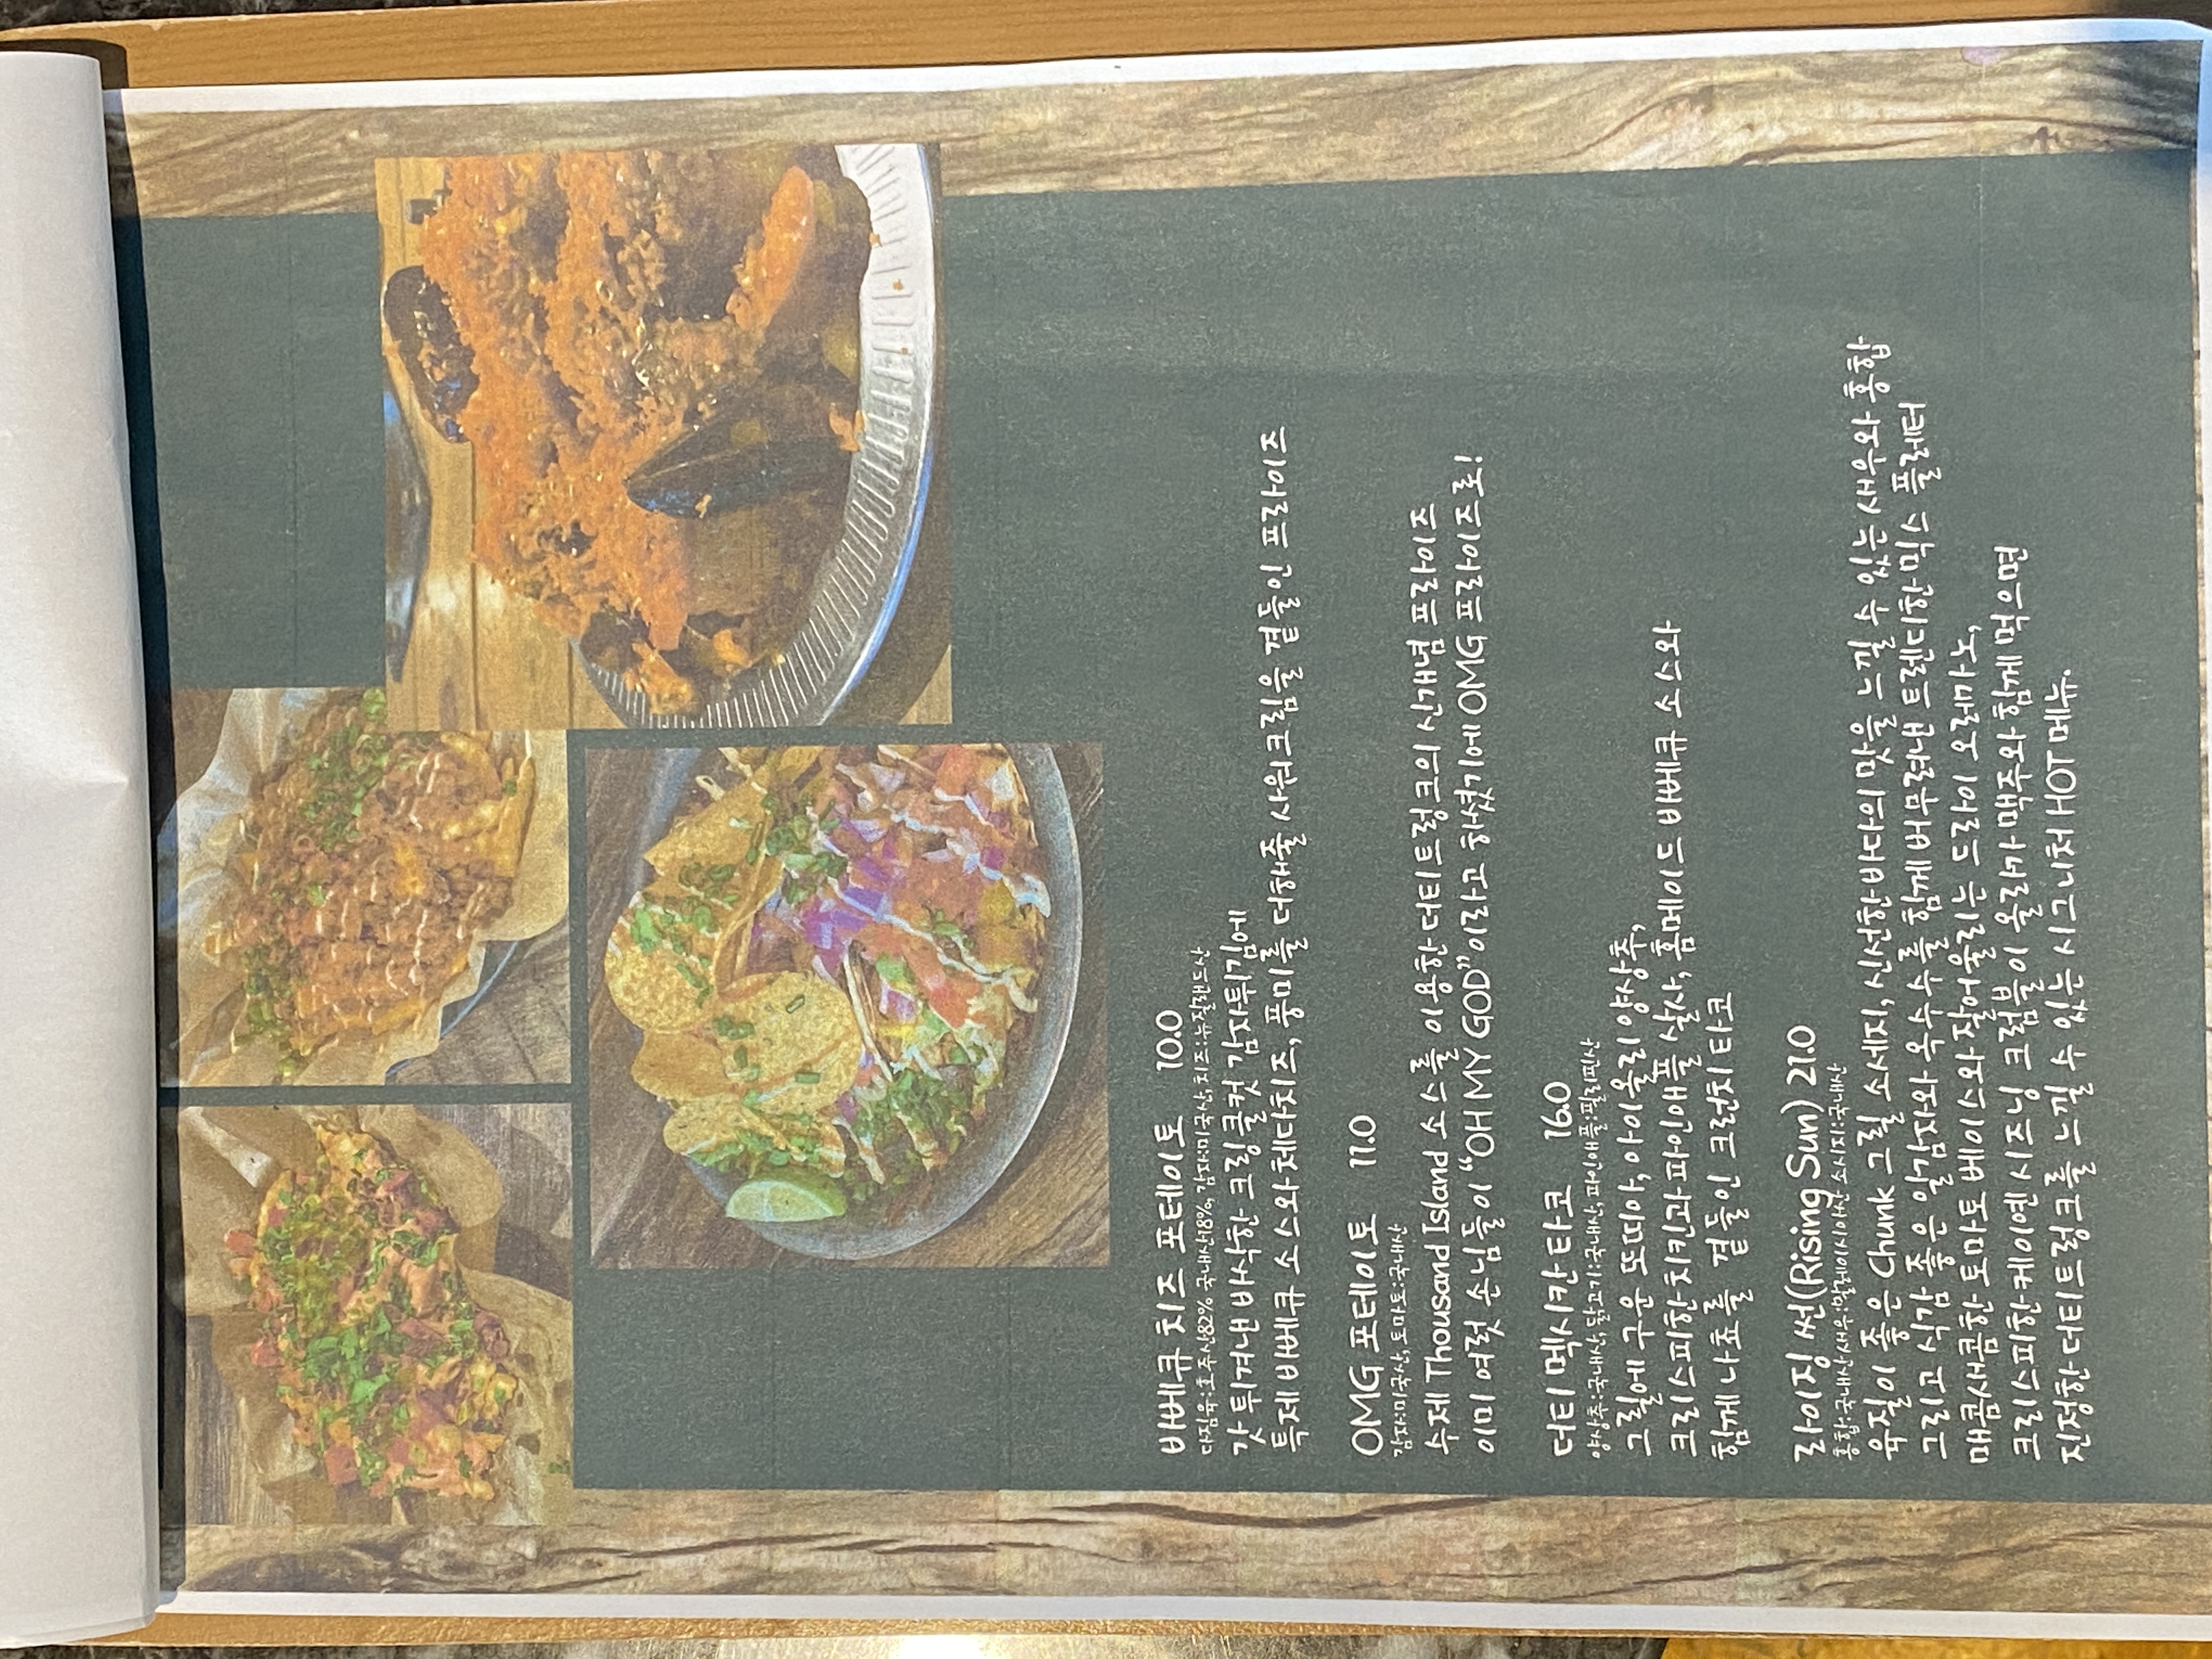 바베큐 치즈 포테이토 10.0
다짐육:호주산82% 국내산18%, 감자:미국산,치즈:뉴질랜드산
갓 튀겨낸 바삭한 크링클컷 감자튀김에
특제 바베큐 소스와 체다치즈, 풍미를 더해줄 사워크림을 곁들인 프라이즈
OMG 포테이토 11.0
감자:미국산,토마토:국내산
수제 Thousand Island 소스를 이용한 더티트렁크의 신개념 프라이즈
이미 여럿 손님들이 “OH MY GOD”이라고 하셨기에 OMG 프라이즈로!
더티 멕시칸 타코 16.0
양상추:국내산, 닭고기:국내산, 파인애플:필리핀산
그릴에 구운 또띠아, 아이올리 양상추,
크리스피한 치킨과 파인애플 살사, 홈메이드 바베큐 소스와
함께 나쵸를 곁들인 크런치 타코
라이징 썬(Rising Sun) 21.0
홍합:국내산 새우:말레이시아산 소시지:국내산
육질이 좋은 Chunk 그릴 소세지, 신선한 바다의 맛을 느낄 수 있는 새우와 홍합
그리고 식감 좋은 알감자와 옥수수를 함께 버무려낸 트렌디한 믹스 플래터
매콤새콤한 토마토 베이스와 잘어울리는 드라이 오레가노,
크리스피한 케이옌 시즈닝 크럼블이 올라가 맥주와 함께 먹으면
진정한 더티트렁크를 느낄 수 있는 시그니처 HOT 메뉴.